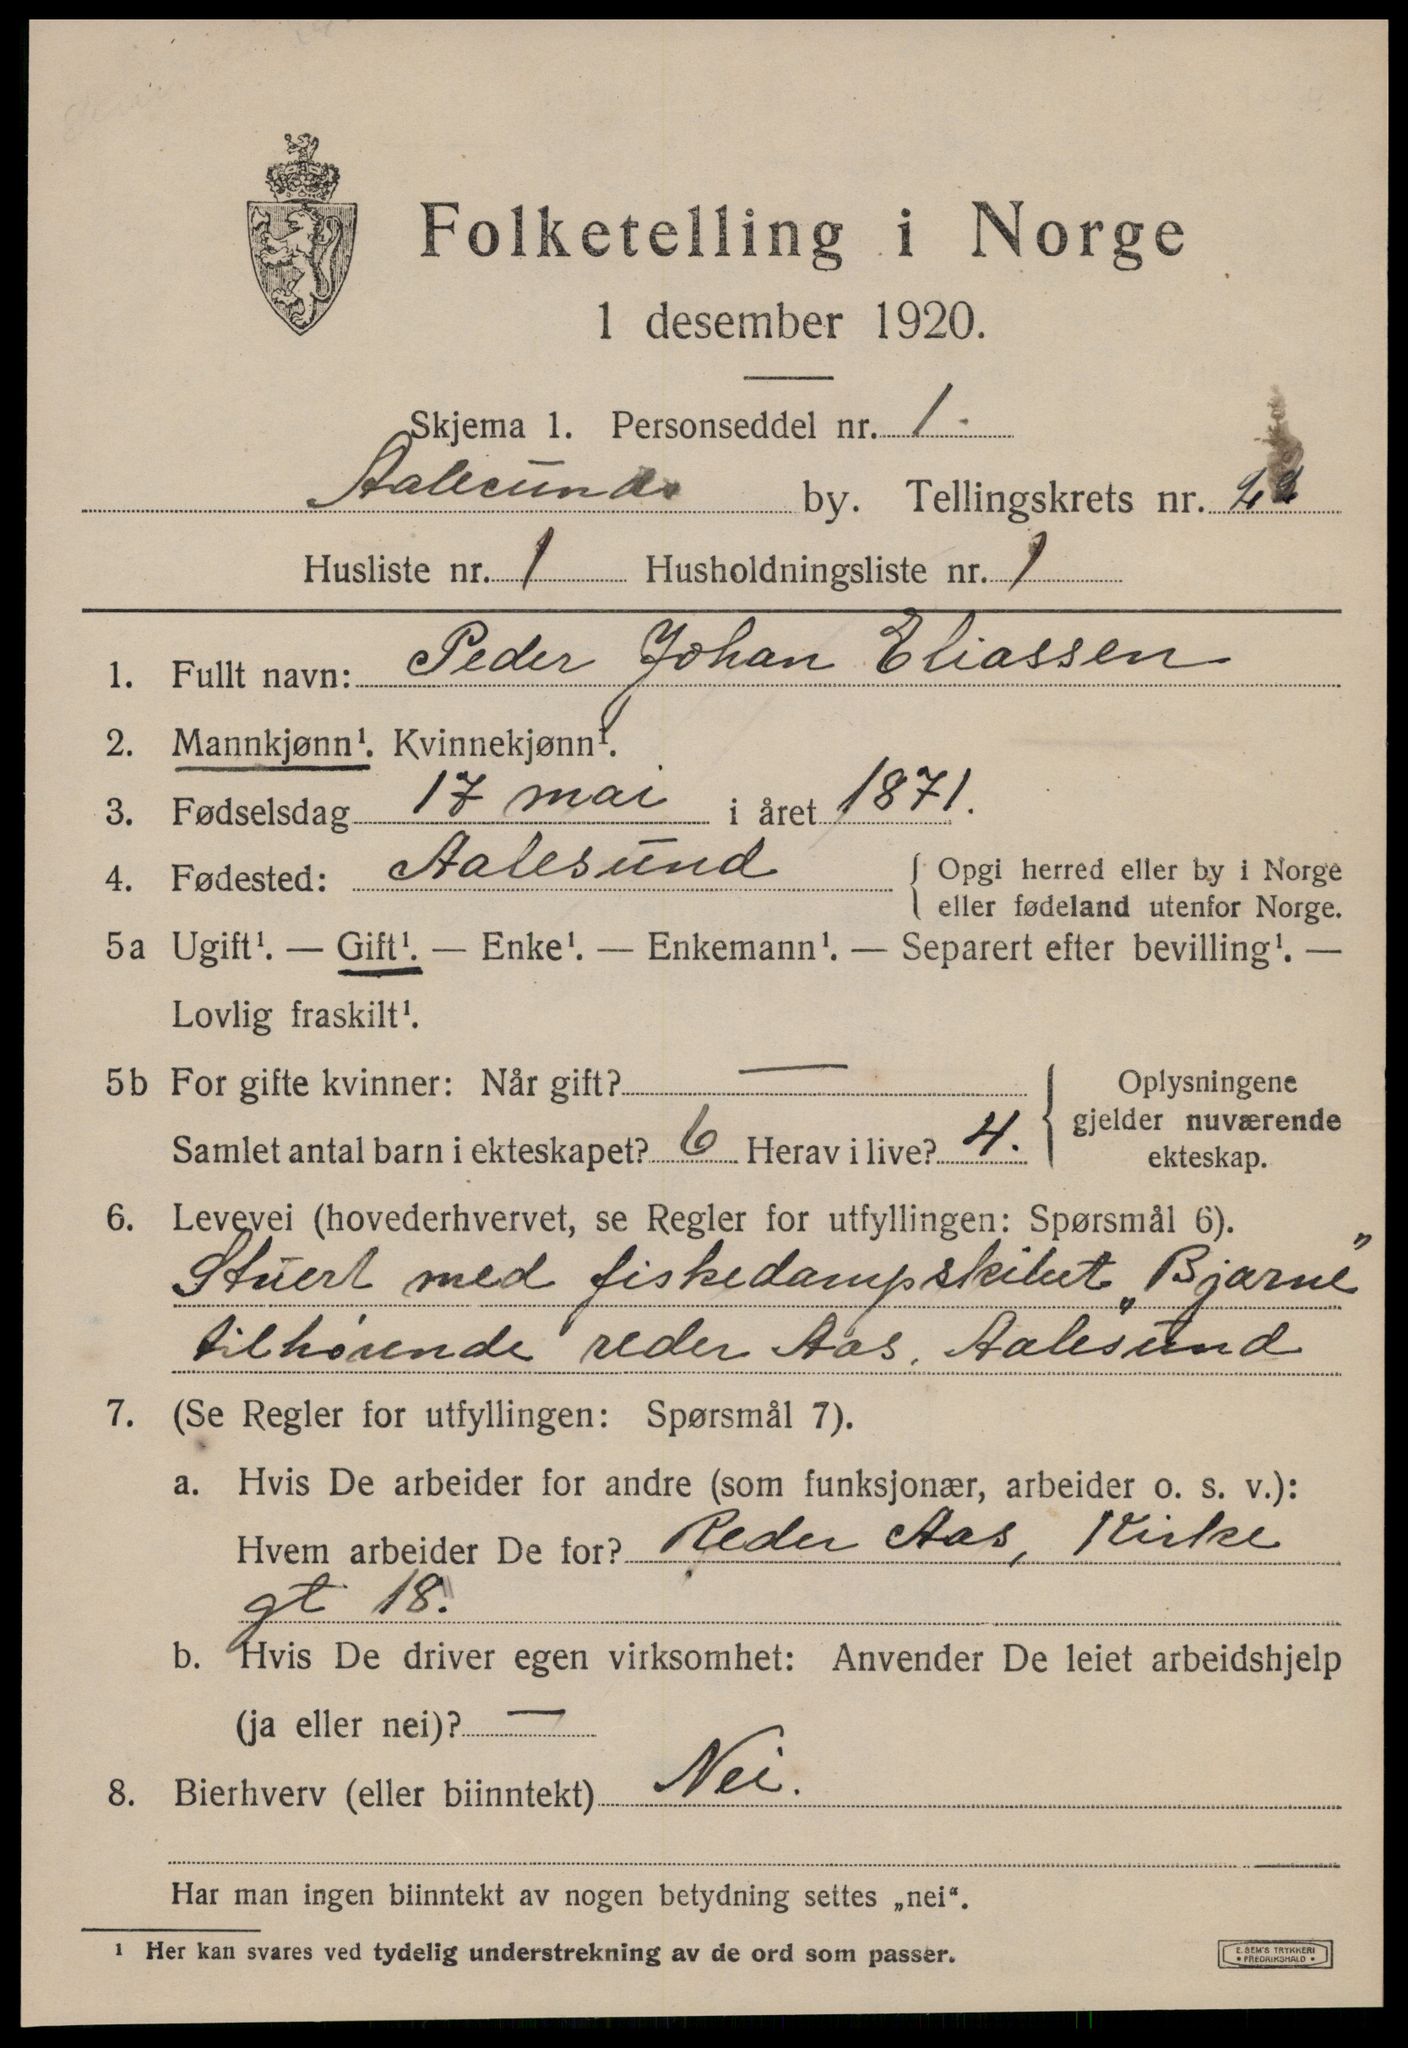 Folketelling i Norge
1 desember 1920.
Skjema 1. Personseddel nr. 1.
Aalesunds by. Tellingskrets nr. 22
Husliste nr. 1 Husholdningsliste nr. 1
1. Fullt navn: Peder Johan Eliassen
2. Mannkjønn¹. Kvinnekjønn¹.
3. Fødselsdag 17 mai i året 1871.
4. Fødested: Aalesund { Opgi herred eller by i Norge
eller fødeland utenfor Norge.
5a Ugift¹. — Gift¹. — Enke¹. — Enkemann¹. — Separert efter bevilling¹. —
Lovlig fraskilt¹.
5b For gifte kvinner: Når gift? — { Oplysningene
gjelder nuværende
ekteskap.
Samlet antal barn i ekteskapet? 6 Herav i live? 4.
6. Levevei (hovederhvervet, se Regler for utfyllingen: Spørsmål 6).
Stuert med fiskedampskibet „Bjarne”
tilhørende reder Aas, Aalesund
7. (Se Regler for utfyllingen: Spørsmål 7).
a. Hvis De arbeider for andre (som funksjonær, arbeider o. s. v.):
Hvem arbeider De for? Reder Aas, Kirke
gt 18.
b. Hvis De driver egen virksomhet: Anvender De leiet arbeidshjelp
(ja eller nei)? —
8. Bierhverv (eller biinntekt) Nei.
Har man ingen biinntekt av nogen betydning settes „nei“.
¹ Her kan svares ved tydelig understrekning av de ord som passer.
E. SEM'S TRYKKERI
• FREDRIKSHALD •